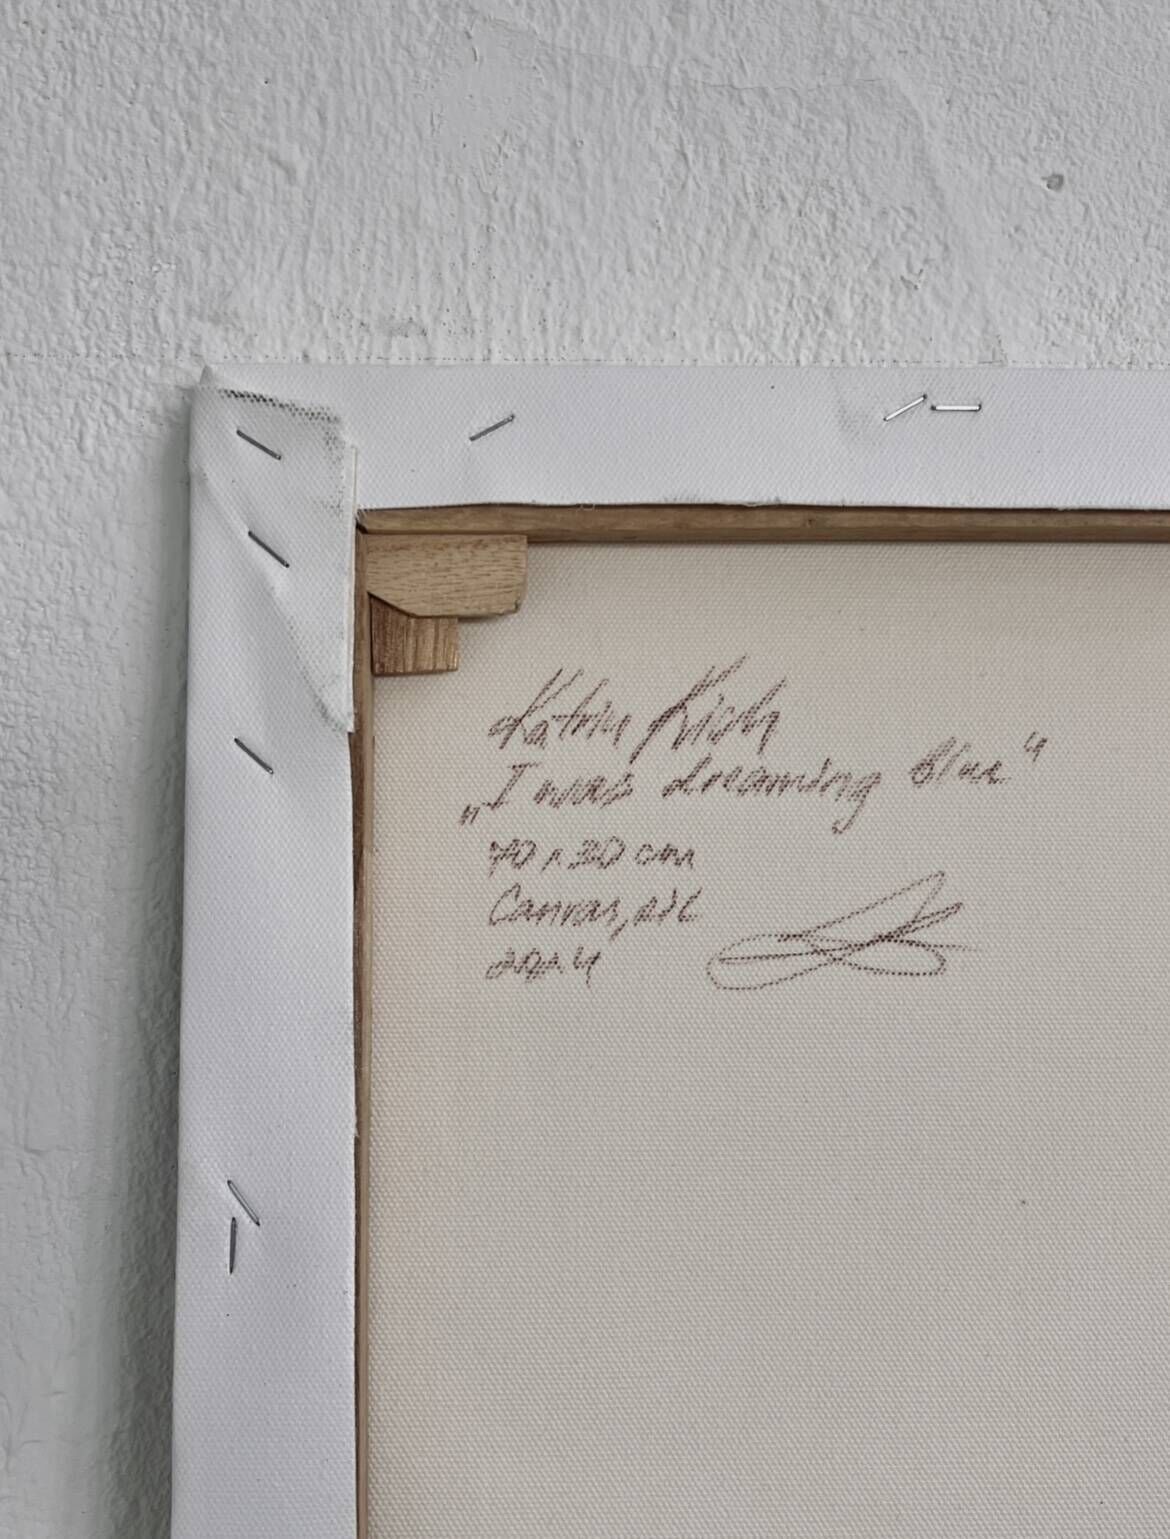 Katrin Kisch
„I was dreaming blue“
70 x 30 cm
Canvas, oil
2024